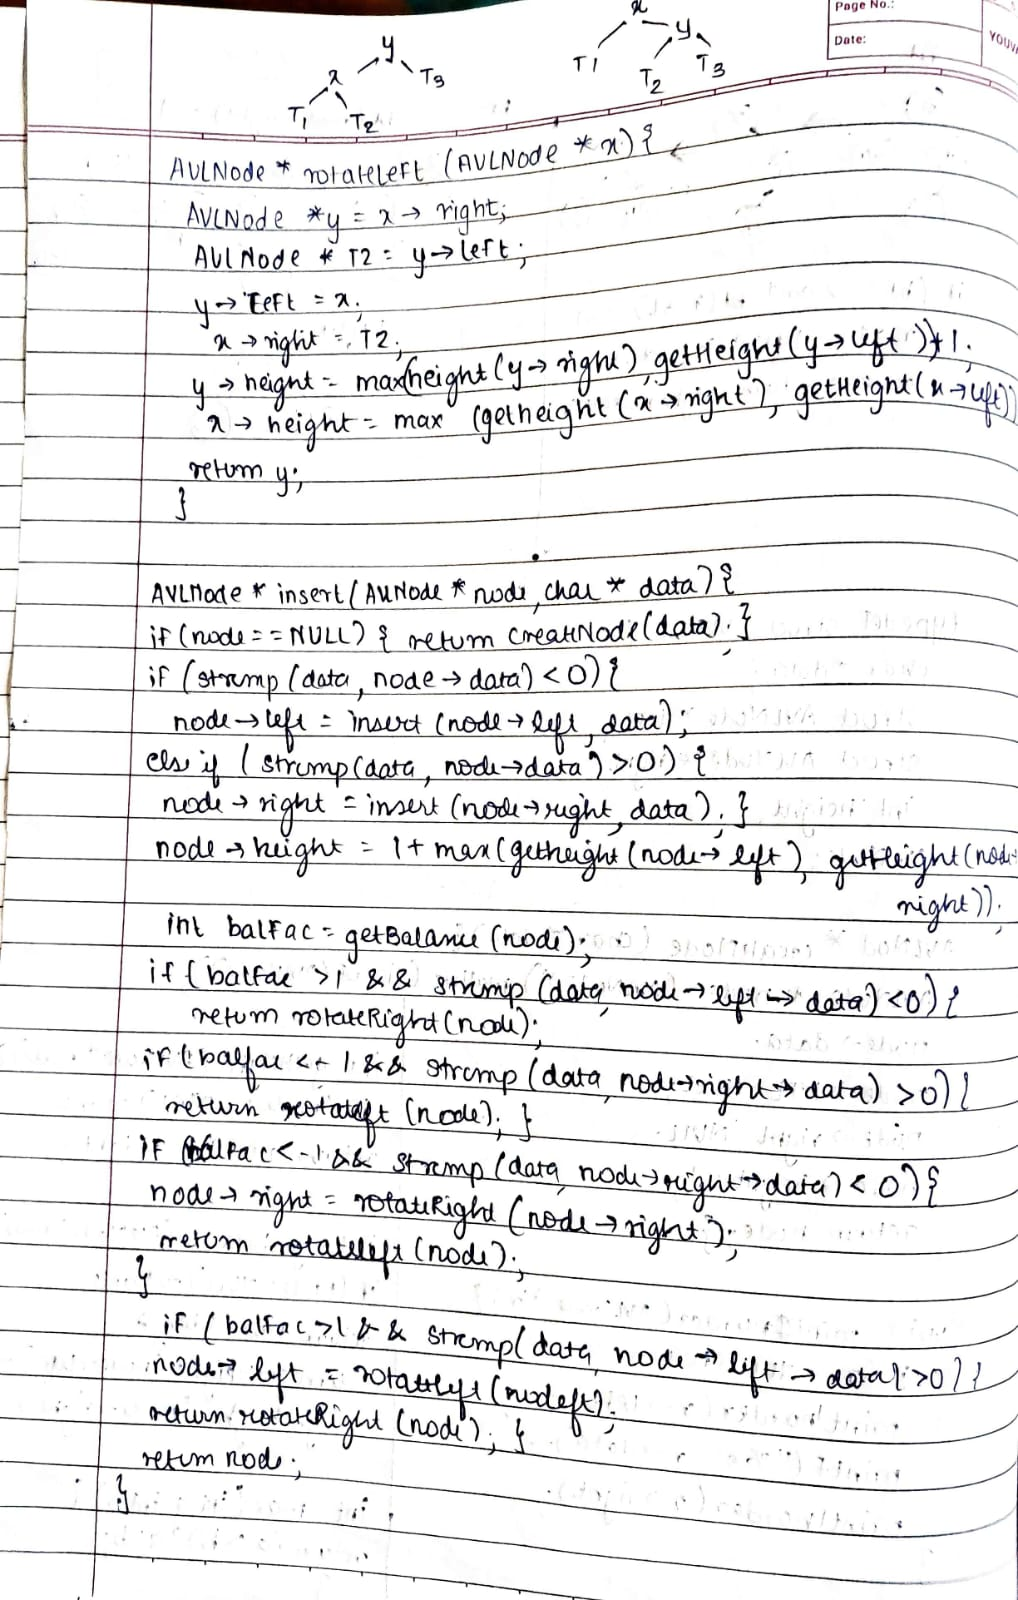 Page No.:
Date:
YOUVA
y
x T3
T1 T2
x
y
T1 T2 T3
AVLNode * rotateLeft (AVLNode * x) {
AVLNode *y = x → right;
AVLNode * T2 = y → left;
y → left = x;
x → right = T2;
y → height = max(height (y → right), getHeight (y → left)) + 1;
x → height = max (getheight (x → right), getHeight (x → left))
return y;
}
AVLNode * insert (AVLNode * node, char * data) {
if (node == NULL) { return creatNode(data); }
if (strcmp (data, node → data) < 0) {
node → left = insert (node → left, data);
else if ( strcmp (data, node → data) > 0) {
node → right = insert (node → right, data); }
node → height = 1 + max (getheight (node → left), getHeight (node
right));
int balFac = getBalance (node);
if ( balfac > 1 && strcmp (data, node → left → data) < 0) {
return rotateRight (node);
if ( balfac < - 1 && strcmp (data, node → right → data) > 0) {
return rotateleft (node); }
if balFac < - 1 && strcmp (data, node → right → data) < 0) {
node → right = rotateRight (node → right);
return rotateleft (node);
}
if ( balFac > 1 && strcmp( data, node → left → data) > 0) {
node → left = rotateleft (nodeleft);
return rotateRight (node); }
return node;
}